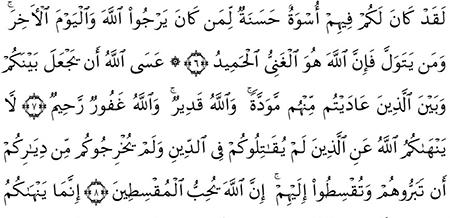 لَقَدْ كَانَ لَكُمْ فِيهِمْ أُسْوَةٌ حَسَنَةٌ لِّمَن كَانَ يَرْجُوا۟ ٱللَّهَ وَٱلْيَوْمَ ٱلْـَٔاخِرَ ۚ
وَمَن يَتَوَلَّ فَإِنَّ ٱللَّهَ هُوَ ٱلْغَنِىُّ ٱلْحَمِيدُ ﴿٦﴾ ۞ عَسَى ٱللَّهُ أَن يَجْعَلَ بَيْنَكُمْ
وَبَيْنَ ٱلَّذِينَ عَادَيْتُم مِّنْهُم مَّوَدَّةً ۚ وَٱللَّهُ قَدِيرٌ ۚ وَٱللَّهُ غَفُورٌ رَّحِيمٌ ﴿٧﴾ لَّا
يَنْهَىٰكُمُ ٱللَّهُ عَنِ ٱلَّذِينَ لَمْ يُقَـٰتِلُوكُمْ فِى ٱلدِّينِ وَلَمْ يُخْرِجُوكُم مِّن دِيَـٰرِكُمْ
أَن تَبَرُّوهُمْ وَتُقْسِطُوٓا۟ إِلَيْهِمْ ۚ إِنَّ ٱللَّهَ يُحِبُّ ٱلْمُقْسِطِينَ ﴿٨﴾ إِنَّمَا يَنْهَىٰكُمُ